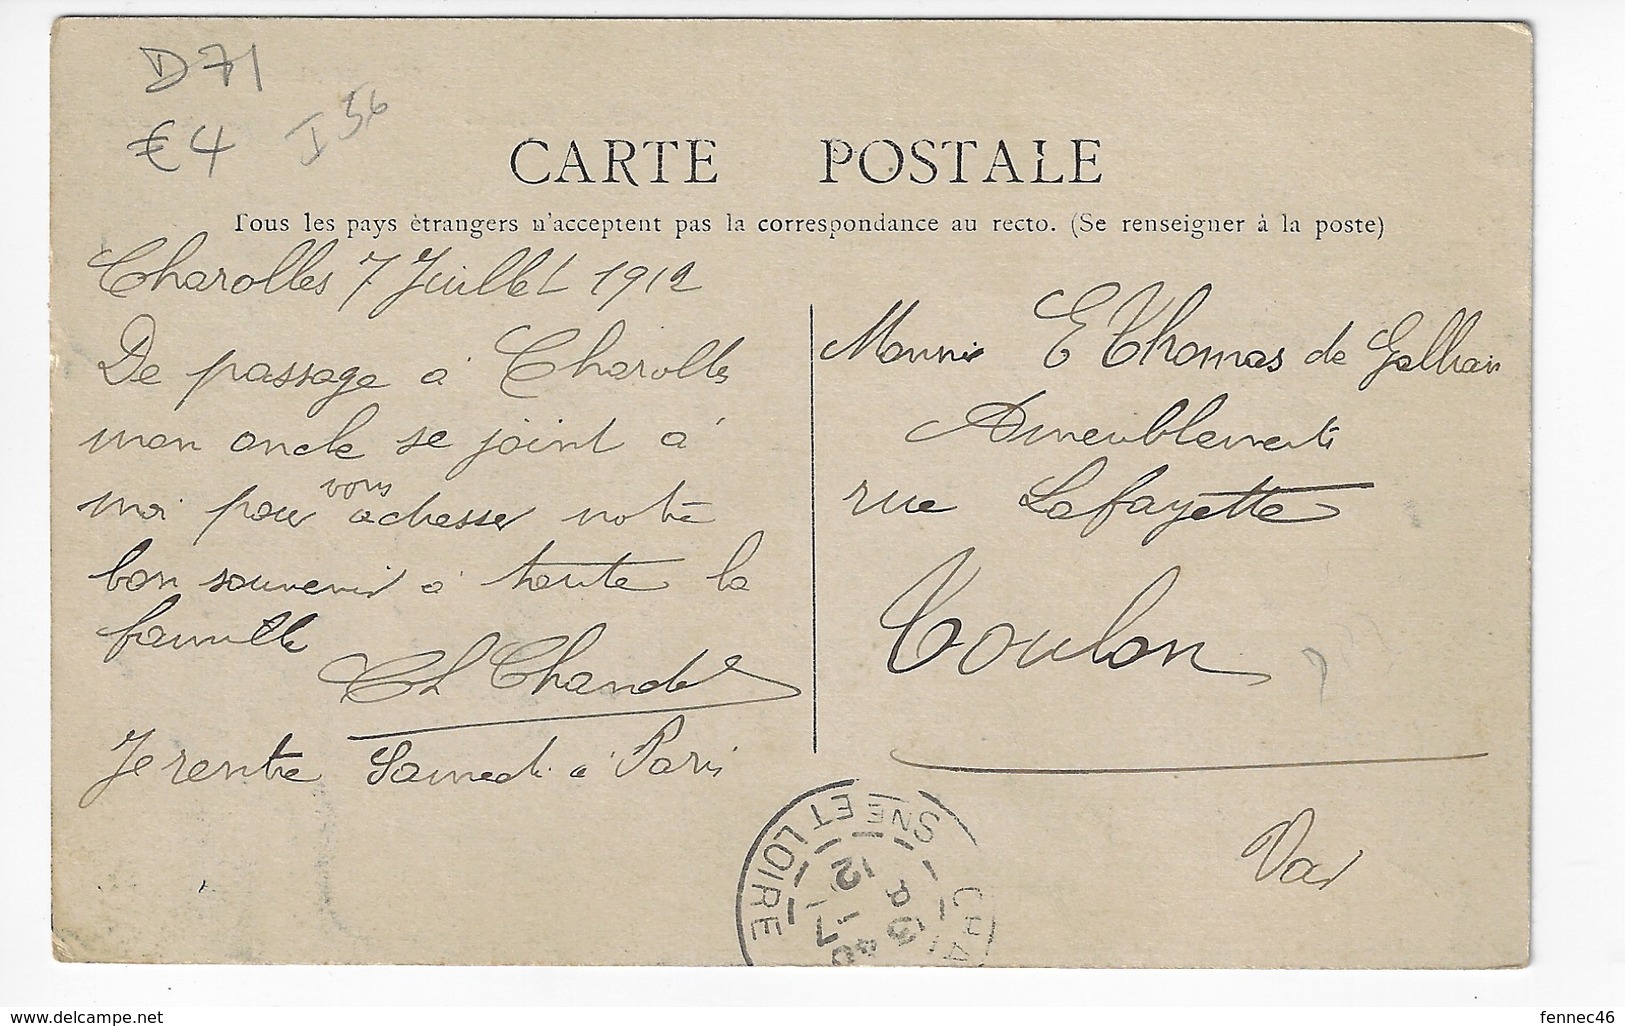 D71
€4 I 56
CARTE POSTALE
Tous les pays étrangers n'acceptent pas la correspondance au recto. (Se renseigner à la poste)
Charolles 7 Juillet 1912
De passage à Charolles
mon oncle se joint à
moi pour vous adresser notre
bon souvenir à toute la
famille
Ch Chandel
Je rentre Samedi à Paris
E Thomas de Gallian
Ameublements
rue Lafayette
Toulon
Var
SNE ET LOIRE
12
www.delcampe.net
fennec46